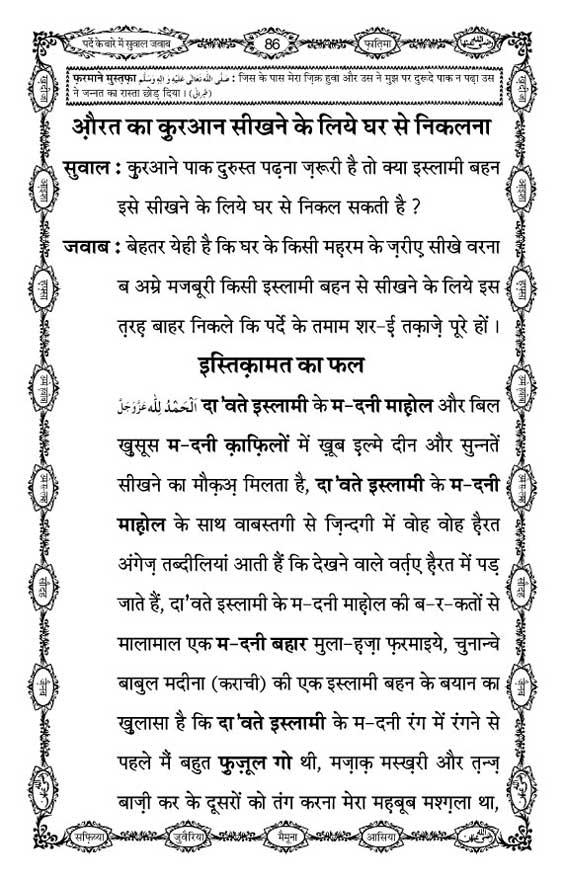 पर्दे के बारे में सुवाल जवाब
86
फ़ातिमा
फ़रमाने मुस्तफ़ा صَلَّى اللهُ تَعَالٰى عَلَيْهِ وَاٰلِهٖ وَسَلَّم : जिस के पास मेरा ज़िक्र हुवा और उस ने मुझ पर दुरूदे पाक न पढ़ा उस
ने जन्नत का रास्ता छोड़ दिया। (طبرانی)
औ़रत का क़ुरआन सीखने के लिये घर से निकलना
सुवाल : क़ुरआने पाक दुरुस्त पढ़ना ज़रूरी है तो क्या इस्लामी बहन
इसे सीखने के लिये घर से निकल सकती है ?
जवाब : बेहतर येही है कि घर के किसी महरम के ज़रीए सीखे वरना
ब अम्रे मजबूरी किसी इस्लामी बहन से सीखने के लिये इस
त़रह़ बाहर निकले कि पर्दे के तमाम शर-ई तक़ाज़े पूरे हों।
इस्तिक़ामत का फल
اَلْحَمْدُ لِلّٰه عَزَّوَجَلَّ दा'वते इस्लामी के म-दनी माह़ोल और बिल
ख़ुसूस म-दनी क़ाफ़िलों में ख़ूब इल्मे दीन और सुन्नतें
सीखने का मौक़अ़ मिलता है, दा'वते इस्लामी के म-दनी
माह़ोल के साथ वाबस्तगी से ज़िन्दगी में वोह वोह हैरत
अंगेज़ तब्दीलियां आती हैं कि देखने वाले वर्त़ए हैरत में पड़
जाते हैं, दा'वते इस्लामी के म-दनी माह़ोल की ब-र-कतों से
मालामाल एक म-दनी बहार मुला-ह़ज़ा फ़रमाइये, चुनान्चे
बाबुल मदीना (कराची) की एक इस्लामी बहन के बयान का
खुलासा है कि दा'वते इस्लामी के म-दनी रंग में रंगने से
पहले मैं बहुत फ़ुज़ूल गो थी, मज़ाक़ मस्ख़री और त़न्ज़
बाज़ी कर के दूसरों को तंग करना मेरा मह़बूब मश्ग़ला था,
सफ़िय्या
जुवैरिया
मैमूना
आसिया